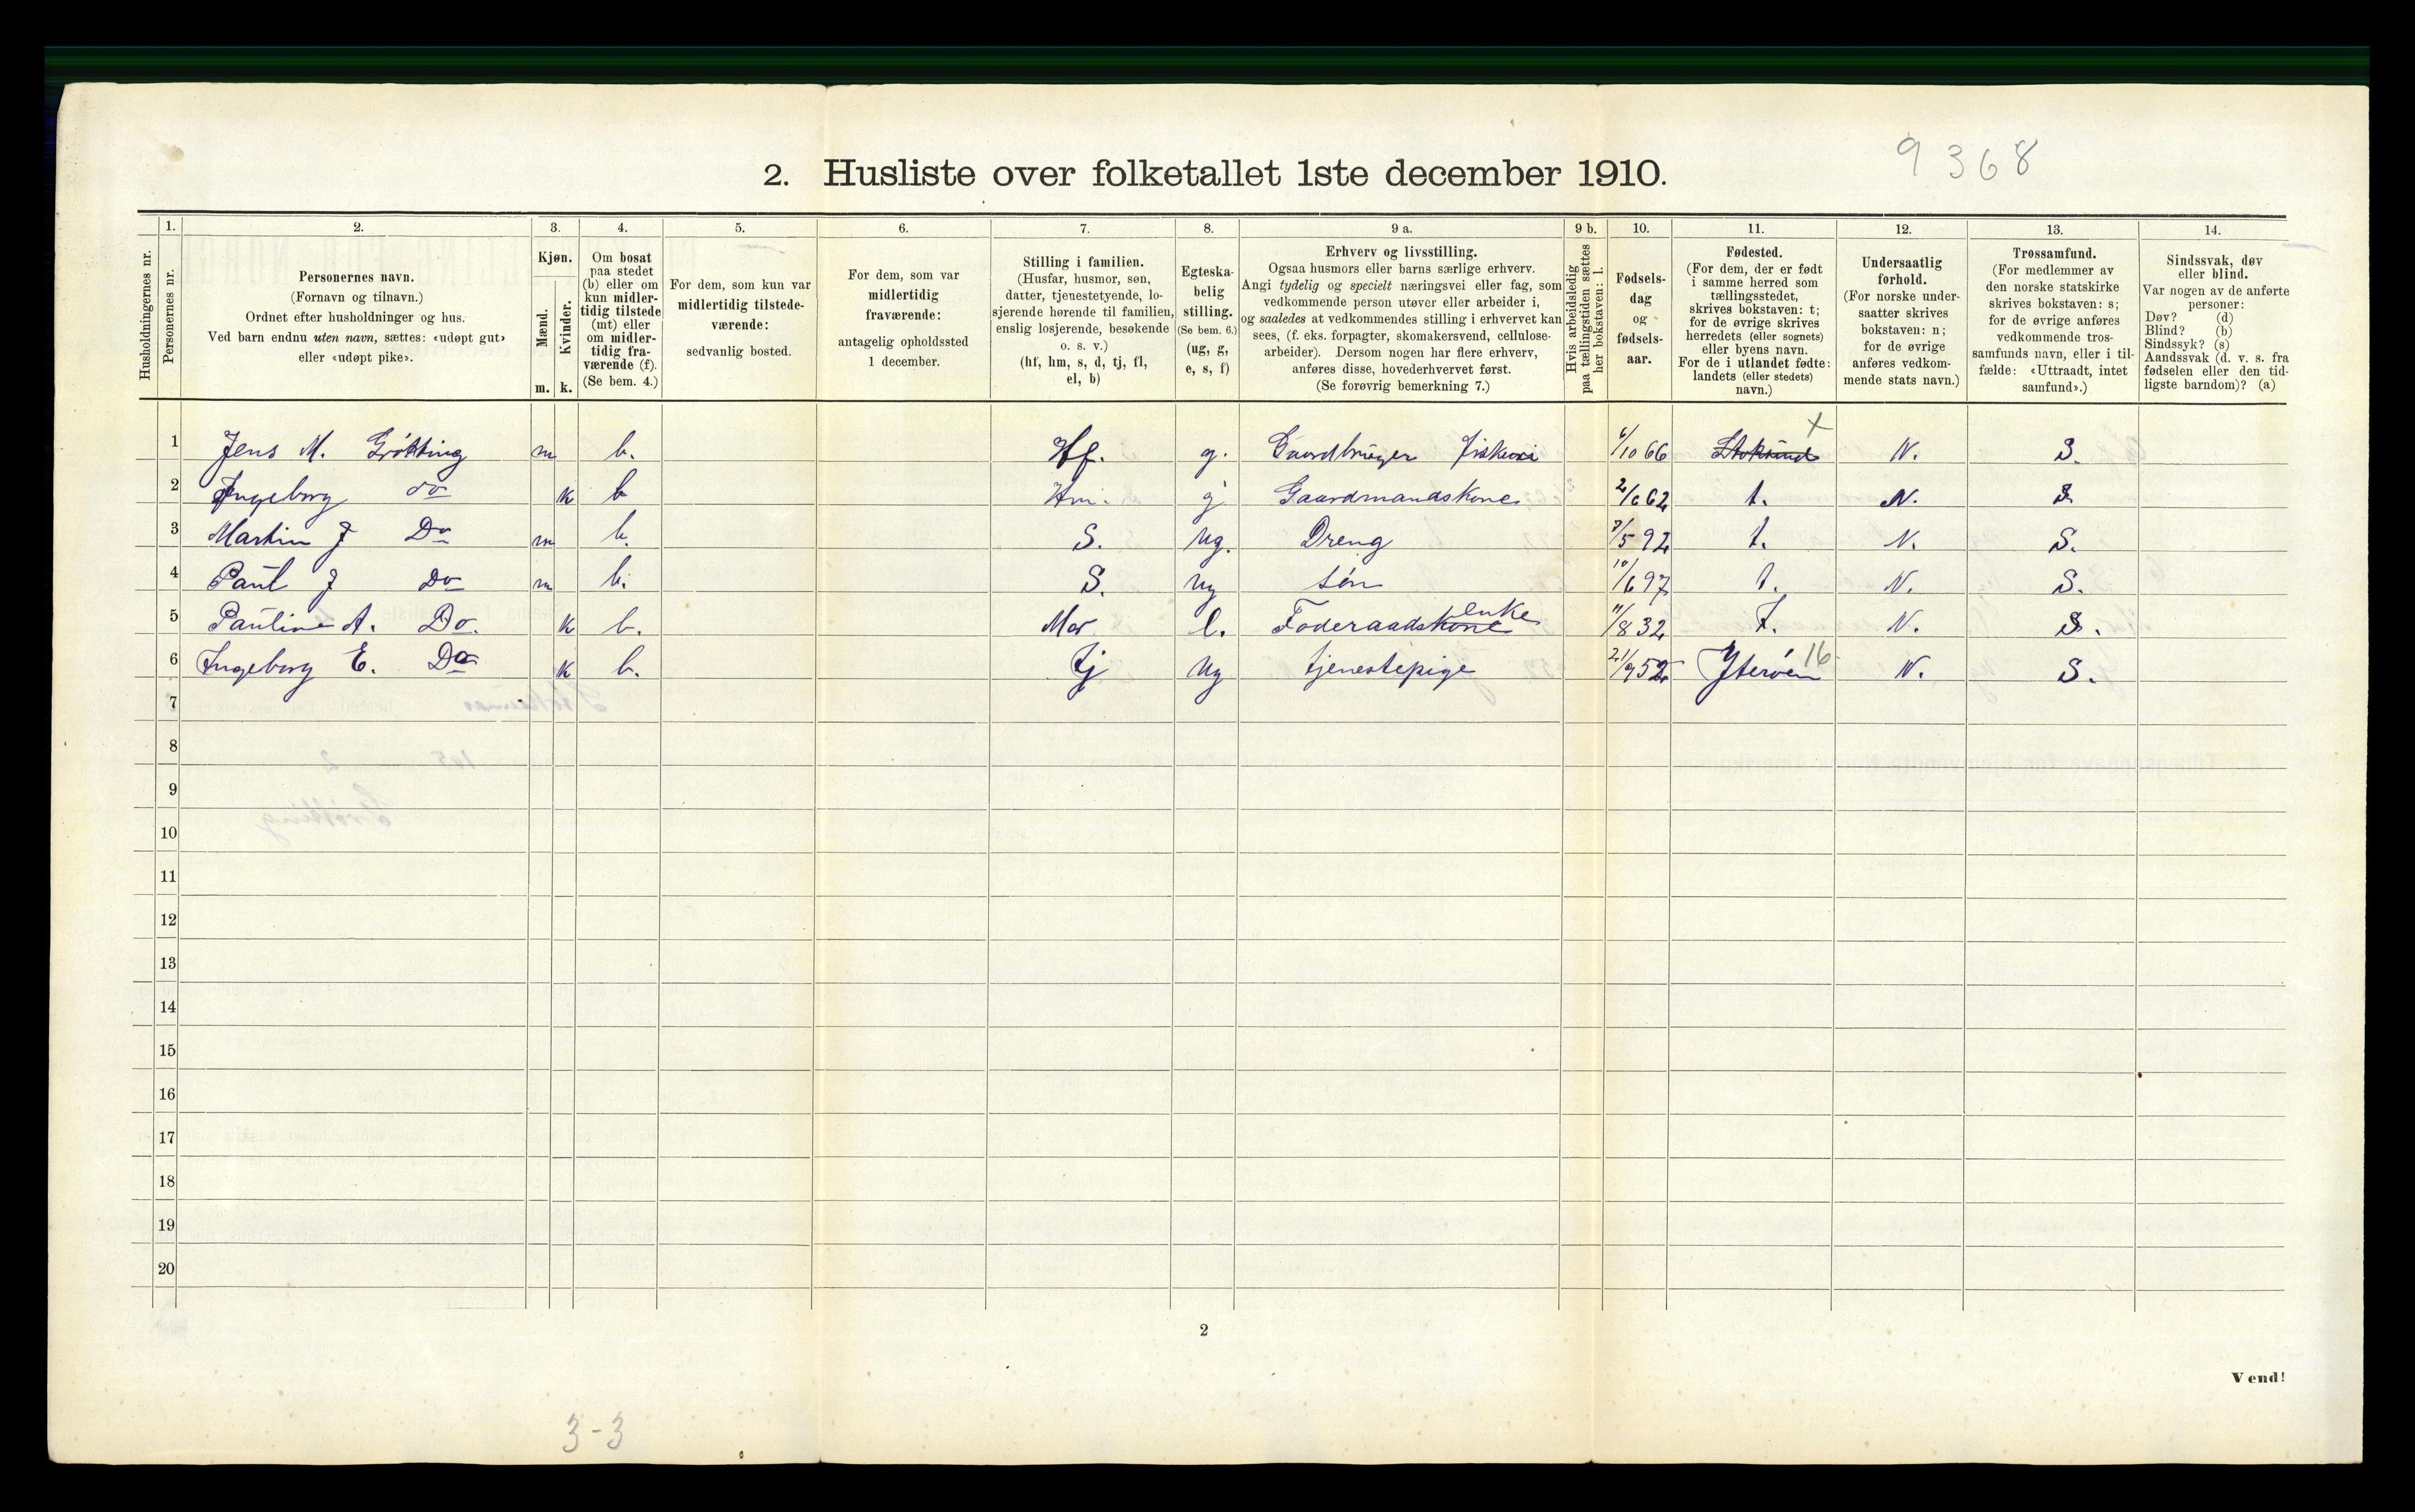 9368
2. Husliste over folketallet 1ste december 1910.
Husholdningernes nr.
1.
Personernes nr.
2.
Personernes navn.
(Fornavn og tilnavn.)
Ordnet efter husholdninger og hus.
Ved barn endnu uten navn, sættes: «udøpt gut»
eller «udøpt pike».
3.
Kjøn.
Mænd.
Kvinder.
m. k.
4.
Om bosat
paa stedet
(b) eller om
kun midler-
tidig tilstede
(mt) eller
om midler-
tidig fra-
værende (f).
(Se bem. 4.)
5.
For dem, som kun var
midlertidig tilstede-
værende:
sedvanlig bosted.
6.
For dem, som var
midlertidig
fraværende:
antagelig opholdssted
1 december.
7.
Stilling i familien.
(Husfar, husmor, søn,
datter, tjenestetyende, lo-
sjerende hørende til familien,
enslig losjerende, besøkende
o. s. v.)
(hf, hm, s, d, tj, fl,
el, b)
8.
Egteska-
belig
stilling.
(Se bem. 6.)
(ug, g,
e, s, f)
9 a.
Erhverv og livsstilling.
Ogsaa husmors eller barns særlige erhverv.
Angi tydelig og specielt næringsvei eller fag, som
vedkommende person utøver eller arbeider i,
og saaledes at vedkommendes stilling i erhvervet kan
sees, (f. eks. forpagter, skomakersvend, cellulose-
arbeider). Dersom nogen har flere erhverv,
anføres disse, hovederhvervet først.
(Se forøvrig bemerkning 7.)
9 b.
Hvis arbeidsledig
paa tællingstiden sættes
her bokstaven: l.
10.
Fødsels-
dag
og
fødsels-
aar.
11.
Fødested.
(For dem, der er født
i samme herred som
tællingsstedet,
skrives bokstaven: t;
for de øvrige skrives
herredets (eller sognets)
eller byens navn.
For de i utlandet fødte:
landets (eller stedets)
navn.)
12.
Undersaatlig
forhold.
(For norske under-
saatter skrives
bokstaven: n;
for de øvrige
anføres vedkom-
mende stats navn.)
13.
Trossamfund.
(For medlemmer av
den norske statskirke
skrives bokstaven: s;
for de øvrige anføres
vedkommende tros-
samfunds navn, eller i til-
fælde: «Uttraadt, intet
samfund».)
14.
Sindssvak, døv
eller blind.
Var nogen av de anførte
personer:
Døv? (d)
Blind? (b)
Sindssyk? (s)
Aandssvak (d. v. s. fra
fødselen eller den tid-
ligste barndom)? (a)
1 Jens M. Gröttting m b. Hf. g. Gaardbruger Fiskeri 6/10 66 Stoksund x N. S.
2 Ingeborg do k b Hm. g Gaardmandskone 2/6 62 t. N. S
3 Martin J Do m b. S. Ug. Dreng 7/5 92 t. N. S.
4 Paul J Do m b. S. Ug Sön 10/6 97 t. N. S.
5 Pauline A. Do. k b. Mor e. Foderaadskone enke 11/8 32 t. N. S.
6 Ingeborg E. Do k b. tj Ug tjenestepige 21/9 52 Yteröen 16 N. S.
7
8
9
10
11
12
13
14
15
16
17
18
19
20
2
Vend!
3-3